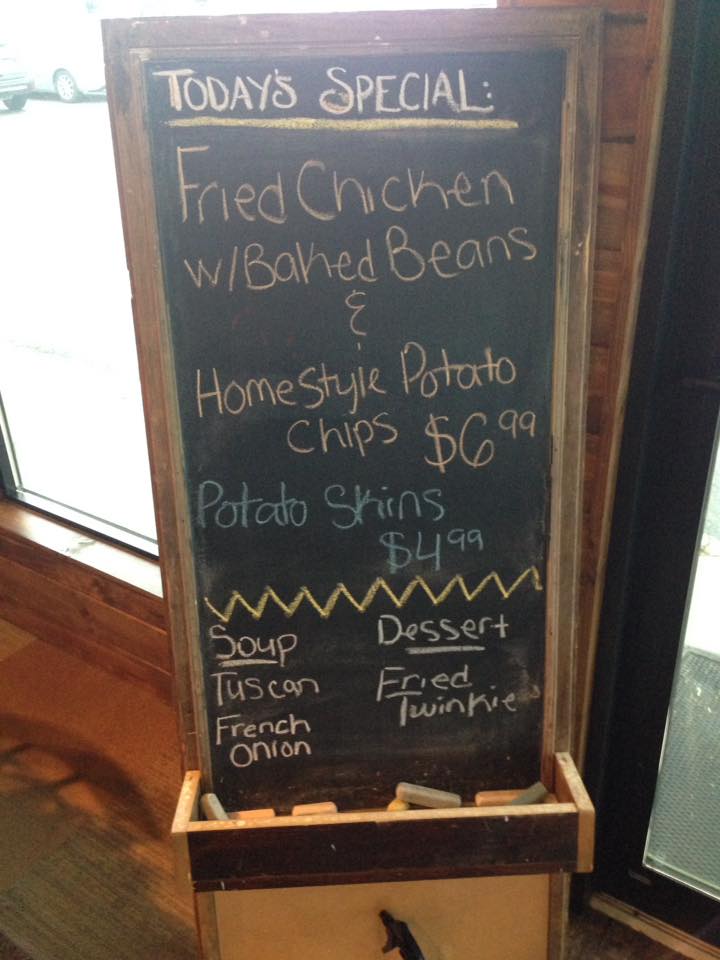 TODAY'S SPECIAL:
Fried Chicken
w/Baked Beans
&
Homestyle Potato
Chips $6.99
Potato Skins
$4.99
Soup
Tuscan
French
Onion
Dessert
Fried
Twinkie